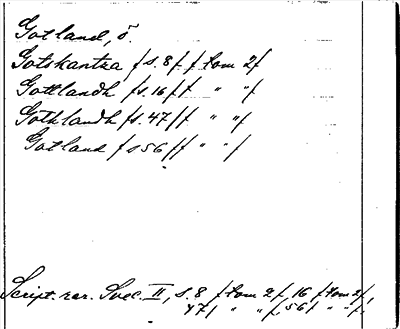 Gotland, ö.
Gotskantza /s. 8/ / tom 2/
Gottlandh /s. 16/ / " "/
Gothlandh /s. 47/ / " "/
Gotland /s 56/ / " "/
Script. rer. Svec. II, s. 8 /tom 2/, 16 /tom 2/,
47/ " "/, 56/ " "/.